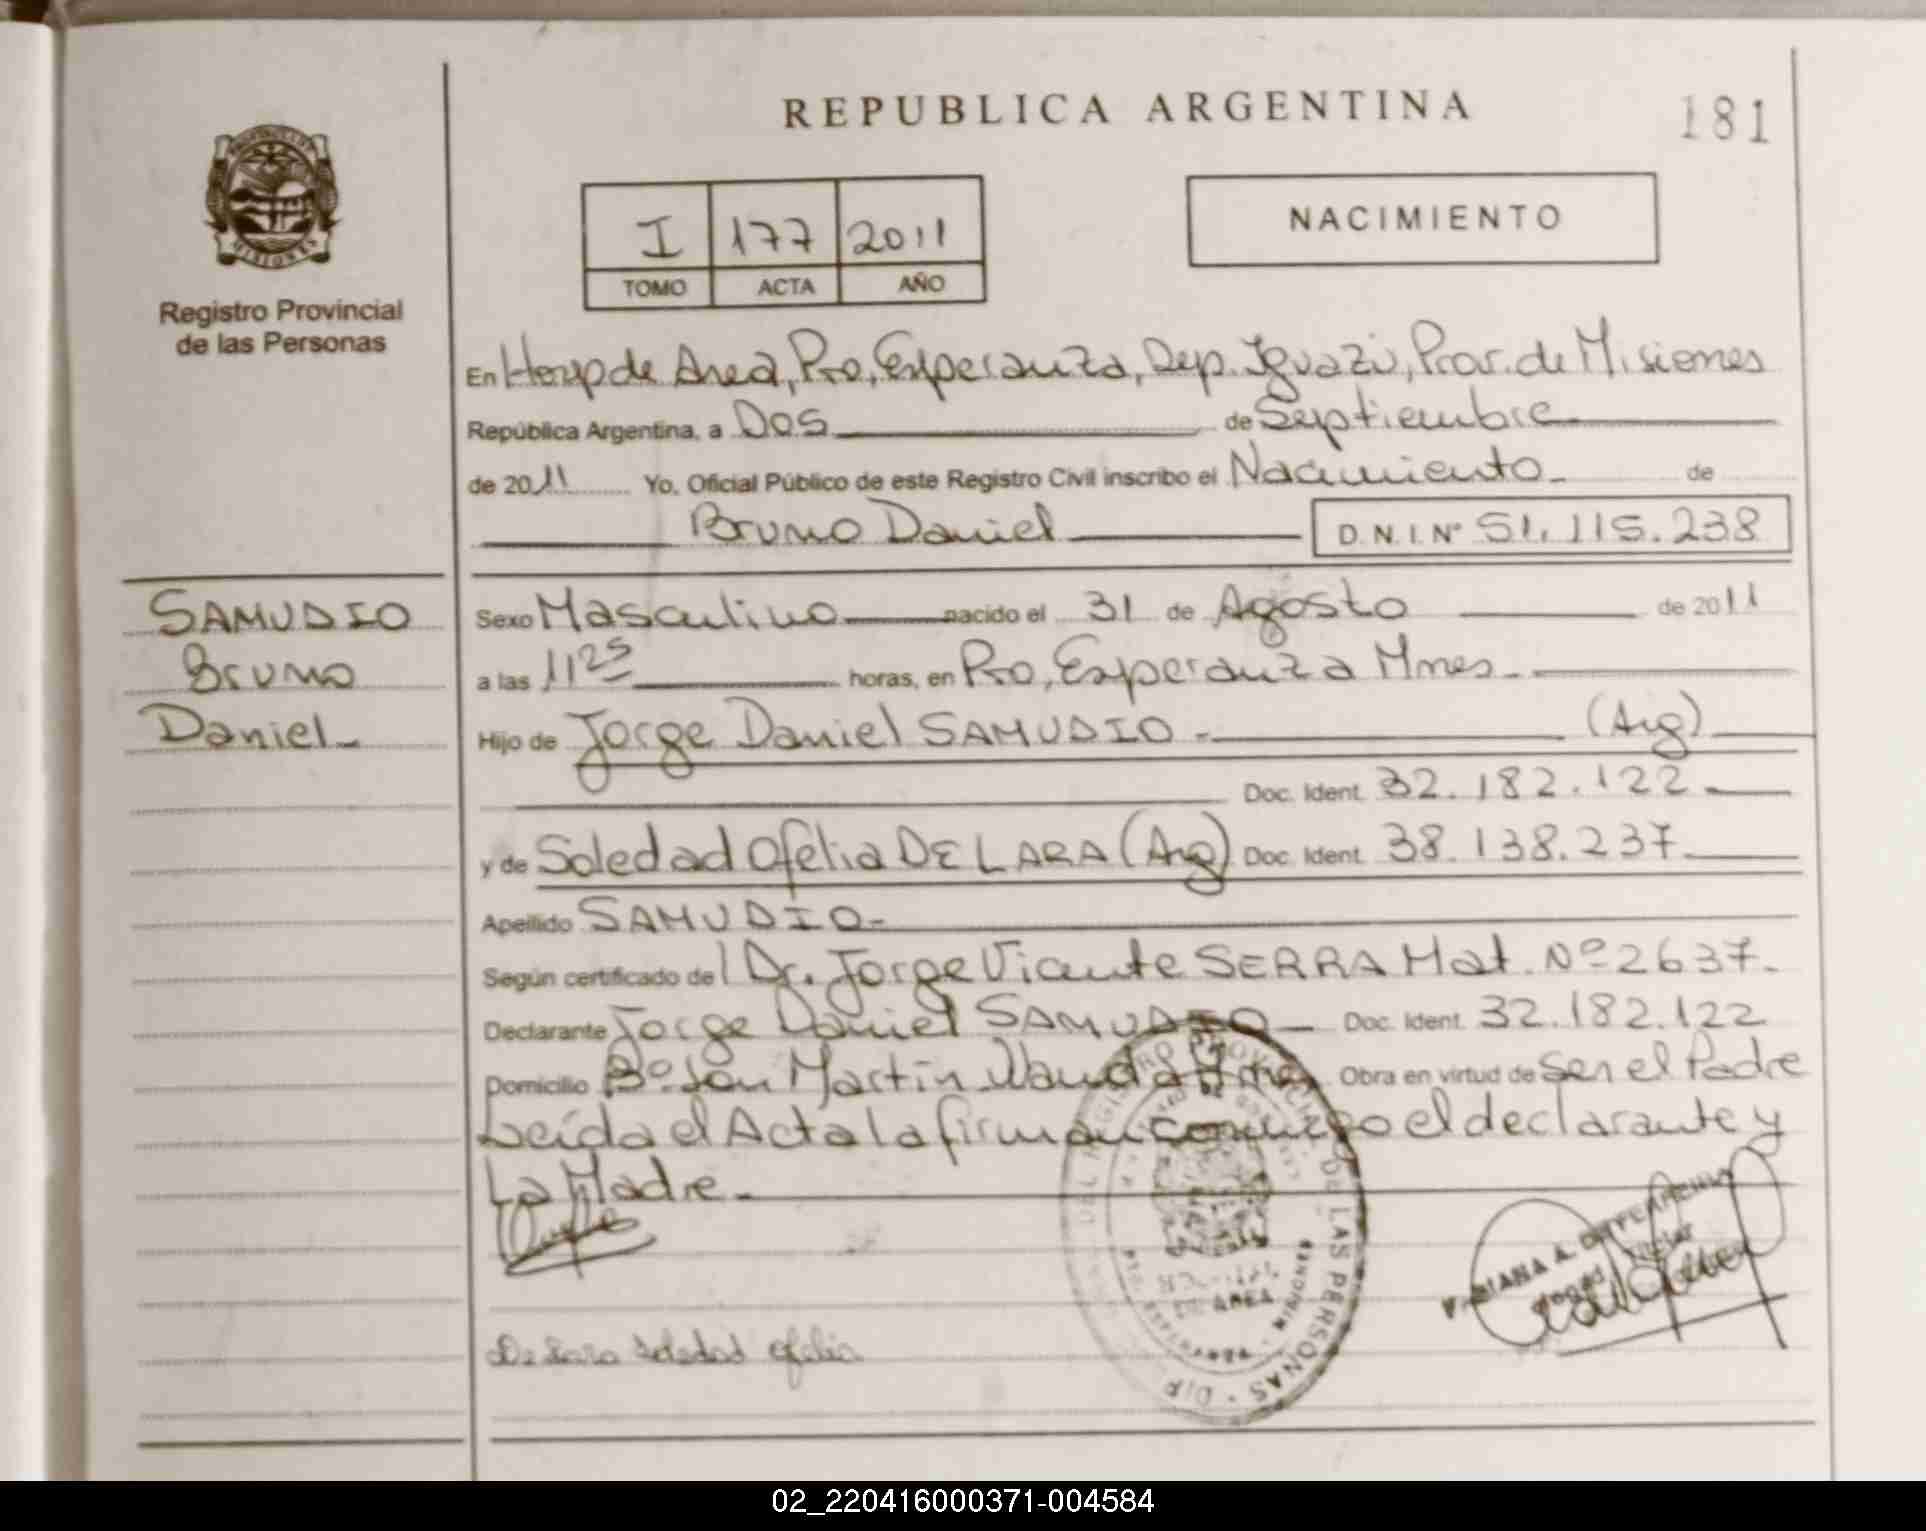 REPUBLICA ARGENTINA
181
MISIONES
Registro Provincial
de las Personas
I 177 2011
TOMO ACTA AÑO
NACIMIENTO
En Hosp de Area, Pto, Esperanza, Dep. Iguazú, Prov. de Misiones
República Argentina, a Dos de Septiembre
de 2011 Yo, Oficial Público de este Registro Civil inscribo el Nacimiento de
Bruno Daniel D.N.I.Nº 51.115.238
SAMUDIO
Bruno
Daniel
Sexo Masculino nacido el 31 de Agosto de 2011
a las 11 25 horas, en Pto, Esperanza Mnes
Hijo de Jorge Daniel SAMUDIO (Arg)
Doc. Ident. 32.182.122
y de Soledad Ofelia DE LARA (Arg) Doc. Ident. 38.138.237
Apellido SAMUDIO
Según certificado del Dr. Jorge Vicente SERRA Mat. Nº 2637
Declarante Jorge Daniel SAMUDIO Doc. Ident. 32.182.122
Domicilio Bº San Martín Wanda Mnes Obra en virtud de Ser el Padre
Leída el Acta la firman conmigo el declarante y
La Madre
De Lara Soledad Ofelia
DE LAS PERSONAS
DE AREA
02_220416000371-004584